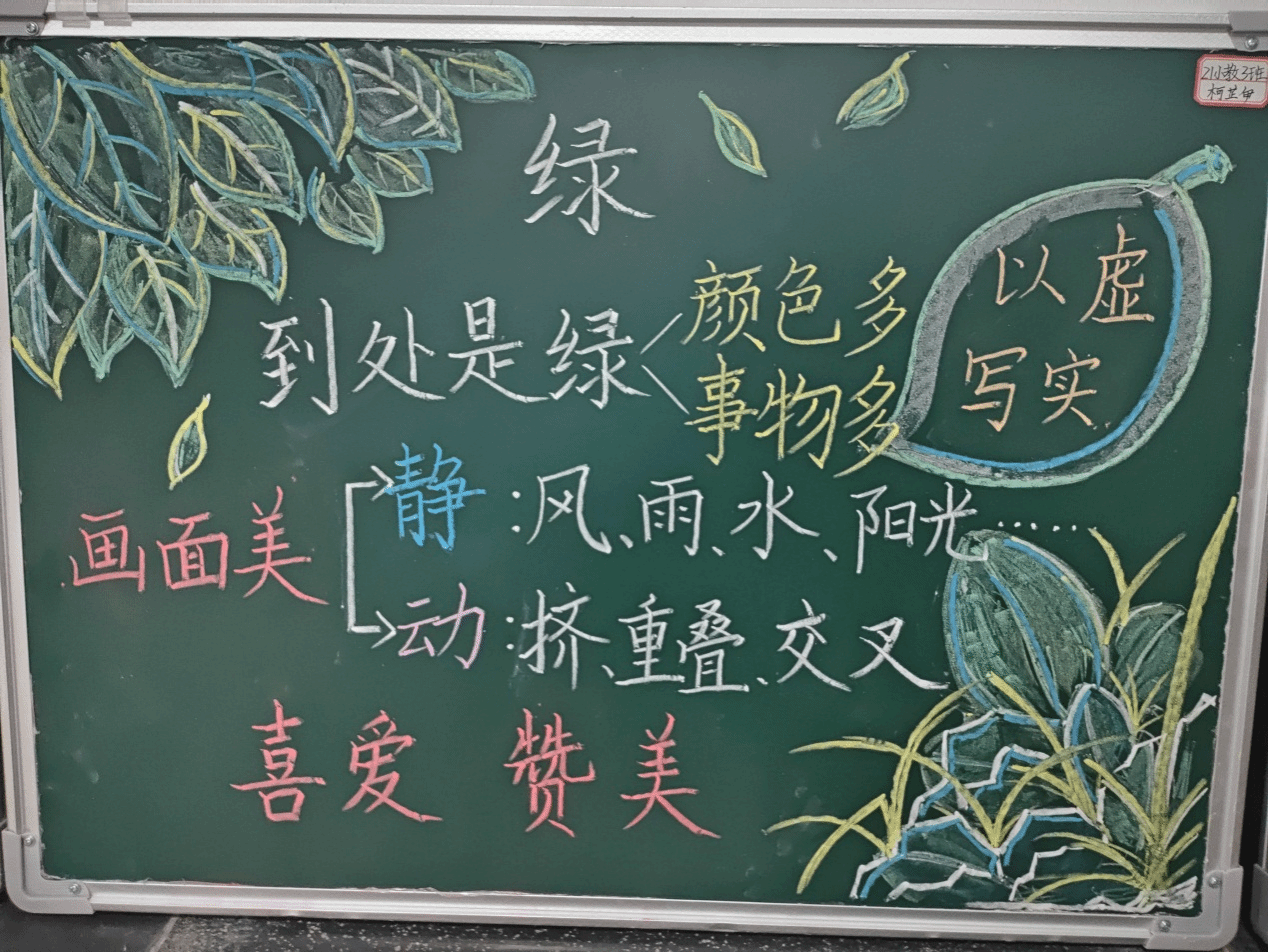 绿
到处是绿
颜色多
事物多
以虚
写实
画面美
静:风、雨、水、阳光……
动:挤、重叠、交叉
喜爱 赞美
21小教3班